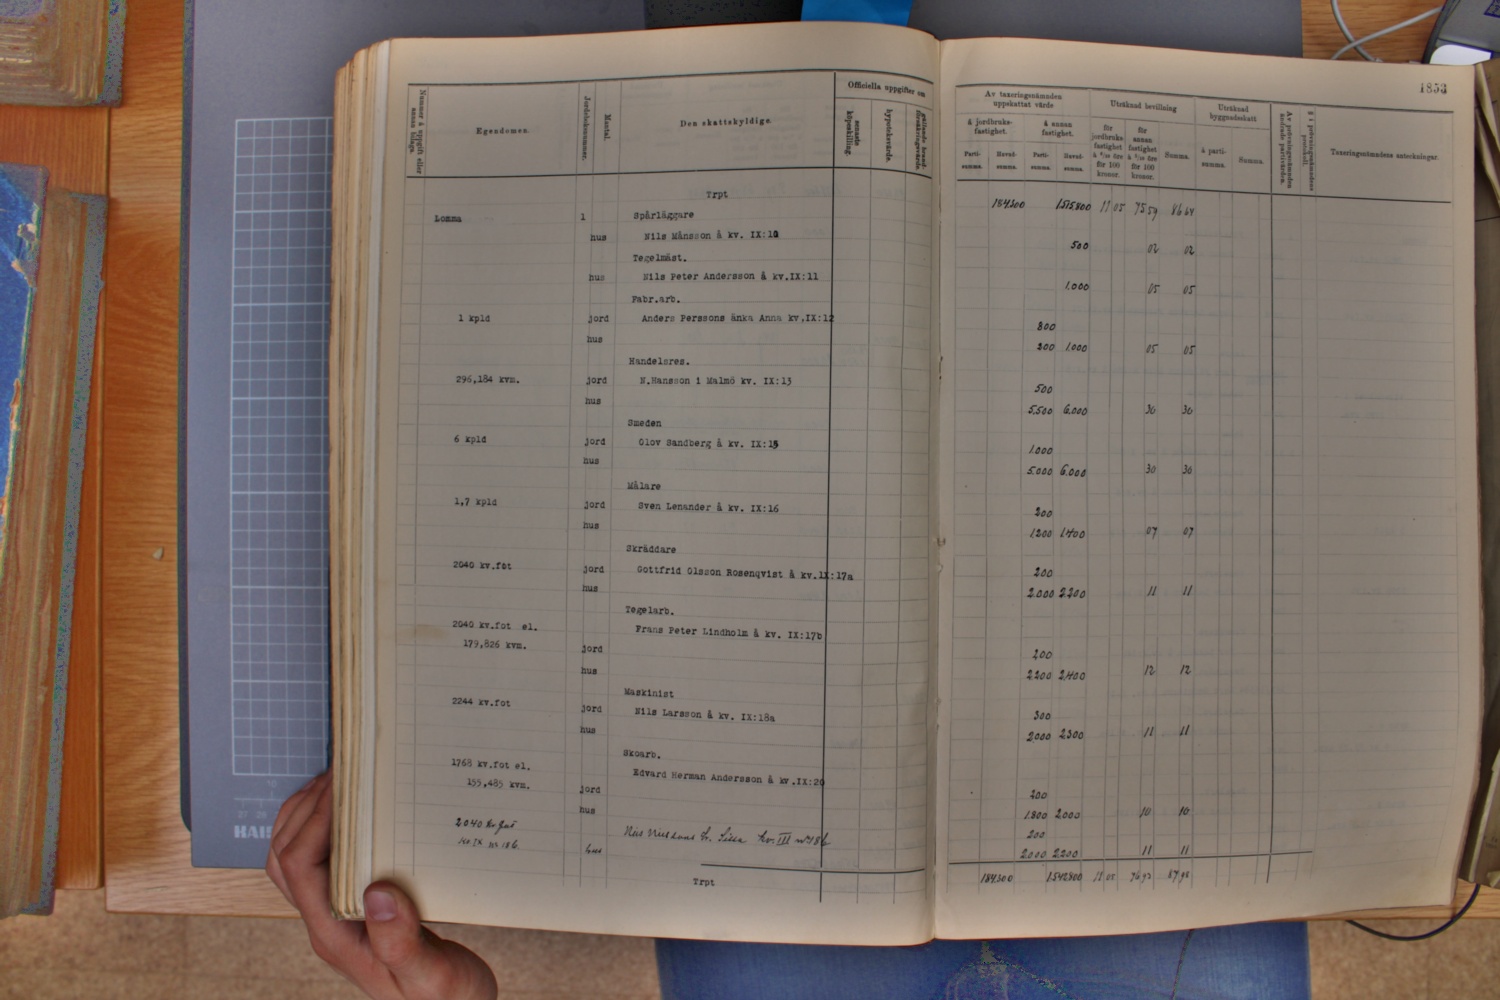 1853
Nummer å uppgift eller annan bilaga.
Egendomen.
Jordeboksnummer.
Mantal.
Den skattskyldige.
Officiella uppgifter om
senaste köpeskilling.
hypoteksvärde.
gällande brandförsäkringsvärde.
Av taxeringsnämnden uppskattat värde
å jordbruksfastighet.
å annan fastighet.
Partisumma.
Huvudsumma.
Partisumma.
Huvudsumma.
Uträknad bevillning
för jordbruksfastighet à 6/10 öre för 100 kronor.
för annan fastighet à 5/10 öre för 100 kronor.
Summa.
Uträknad byggnadsskatt
à partisumma.
Summa.
Av prövningsnämnden ändrade partivärden.
Taxeringsnämndens anteckningar.
Trpt 184300 1515800 11 05 75 59 86 64
Lomma 1 Spårläggare
hus Nils Månsson å kv. IX:10 500 02 02
Tegelmäst.
hus Nils Peter Andersson å kv.IX:11 1.000 05 05
Fabr.arb.
1 kpld jord Anders Perssons änka Anna kv.IX:12 800
hus 200 1.000 05 05
Handelsres.
296,184 kvm. jord N.Hansson i Malmö kv. IX:13 500
hus 5.500 6.000 30 30
Smeden
6 kpld jord Olov Sandberg å kv. IX:15 1.000
hus 5.000 6.000 30 30
Målare
1,7 kpld jord Sven Lenander å kv. IX:16 200
hus 1200 1400 07 07
Skräddare
2040 kv.fot jord Gottfrid Olsson Rosenqvist å kv.IX:17a 200
hus 2.000 2.200 11 11
Tegelarb.
2040 kv.fot el. Frans Peter Lindholm å kv. IX:17b
179,826 kvm. jord 200
hus 2200 2,400 12 12
Maskinist
2244 kv.fot jord Nils Larsson å kv. IX:18a 300
hus 2000 2300 11 11
Skoarb.
1768 kv.fot el. Edvard Herman Andersson å kv.IX:20
155,485 kvm. jord 200
hus 1.800 2.000 10 10
2040 kv fot Nils 200
Kv. IX nr 18 b hus 2000 2200 11 11
Trpt 184300 1542800 11 05 76 92 87 98
HAI